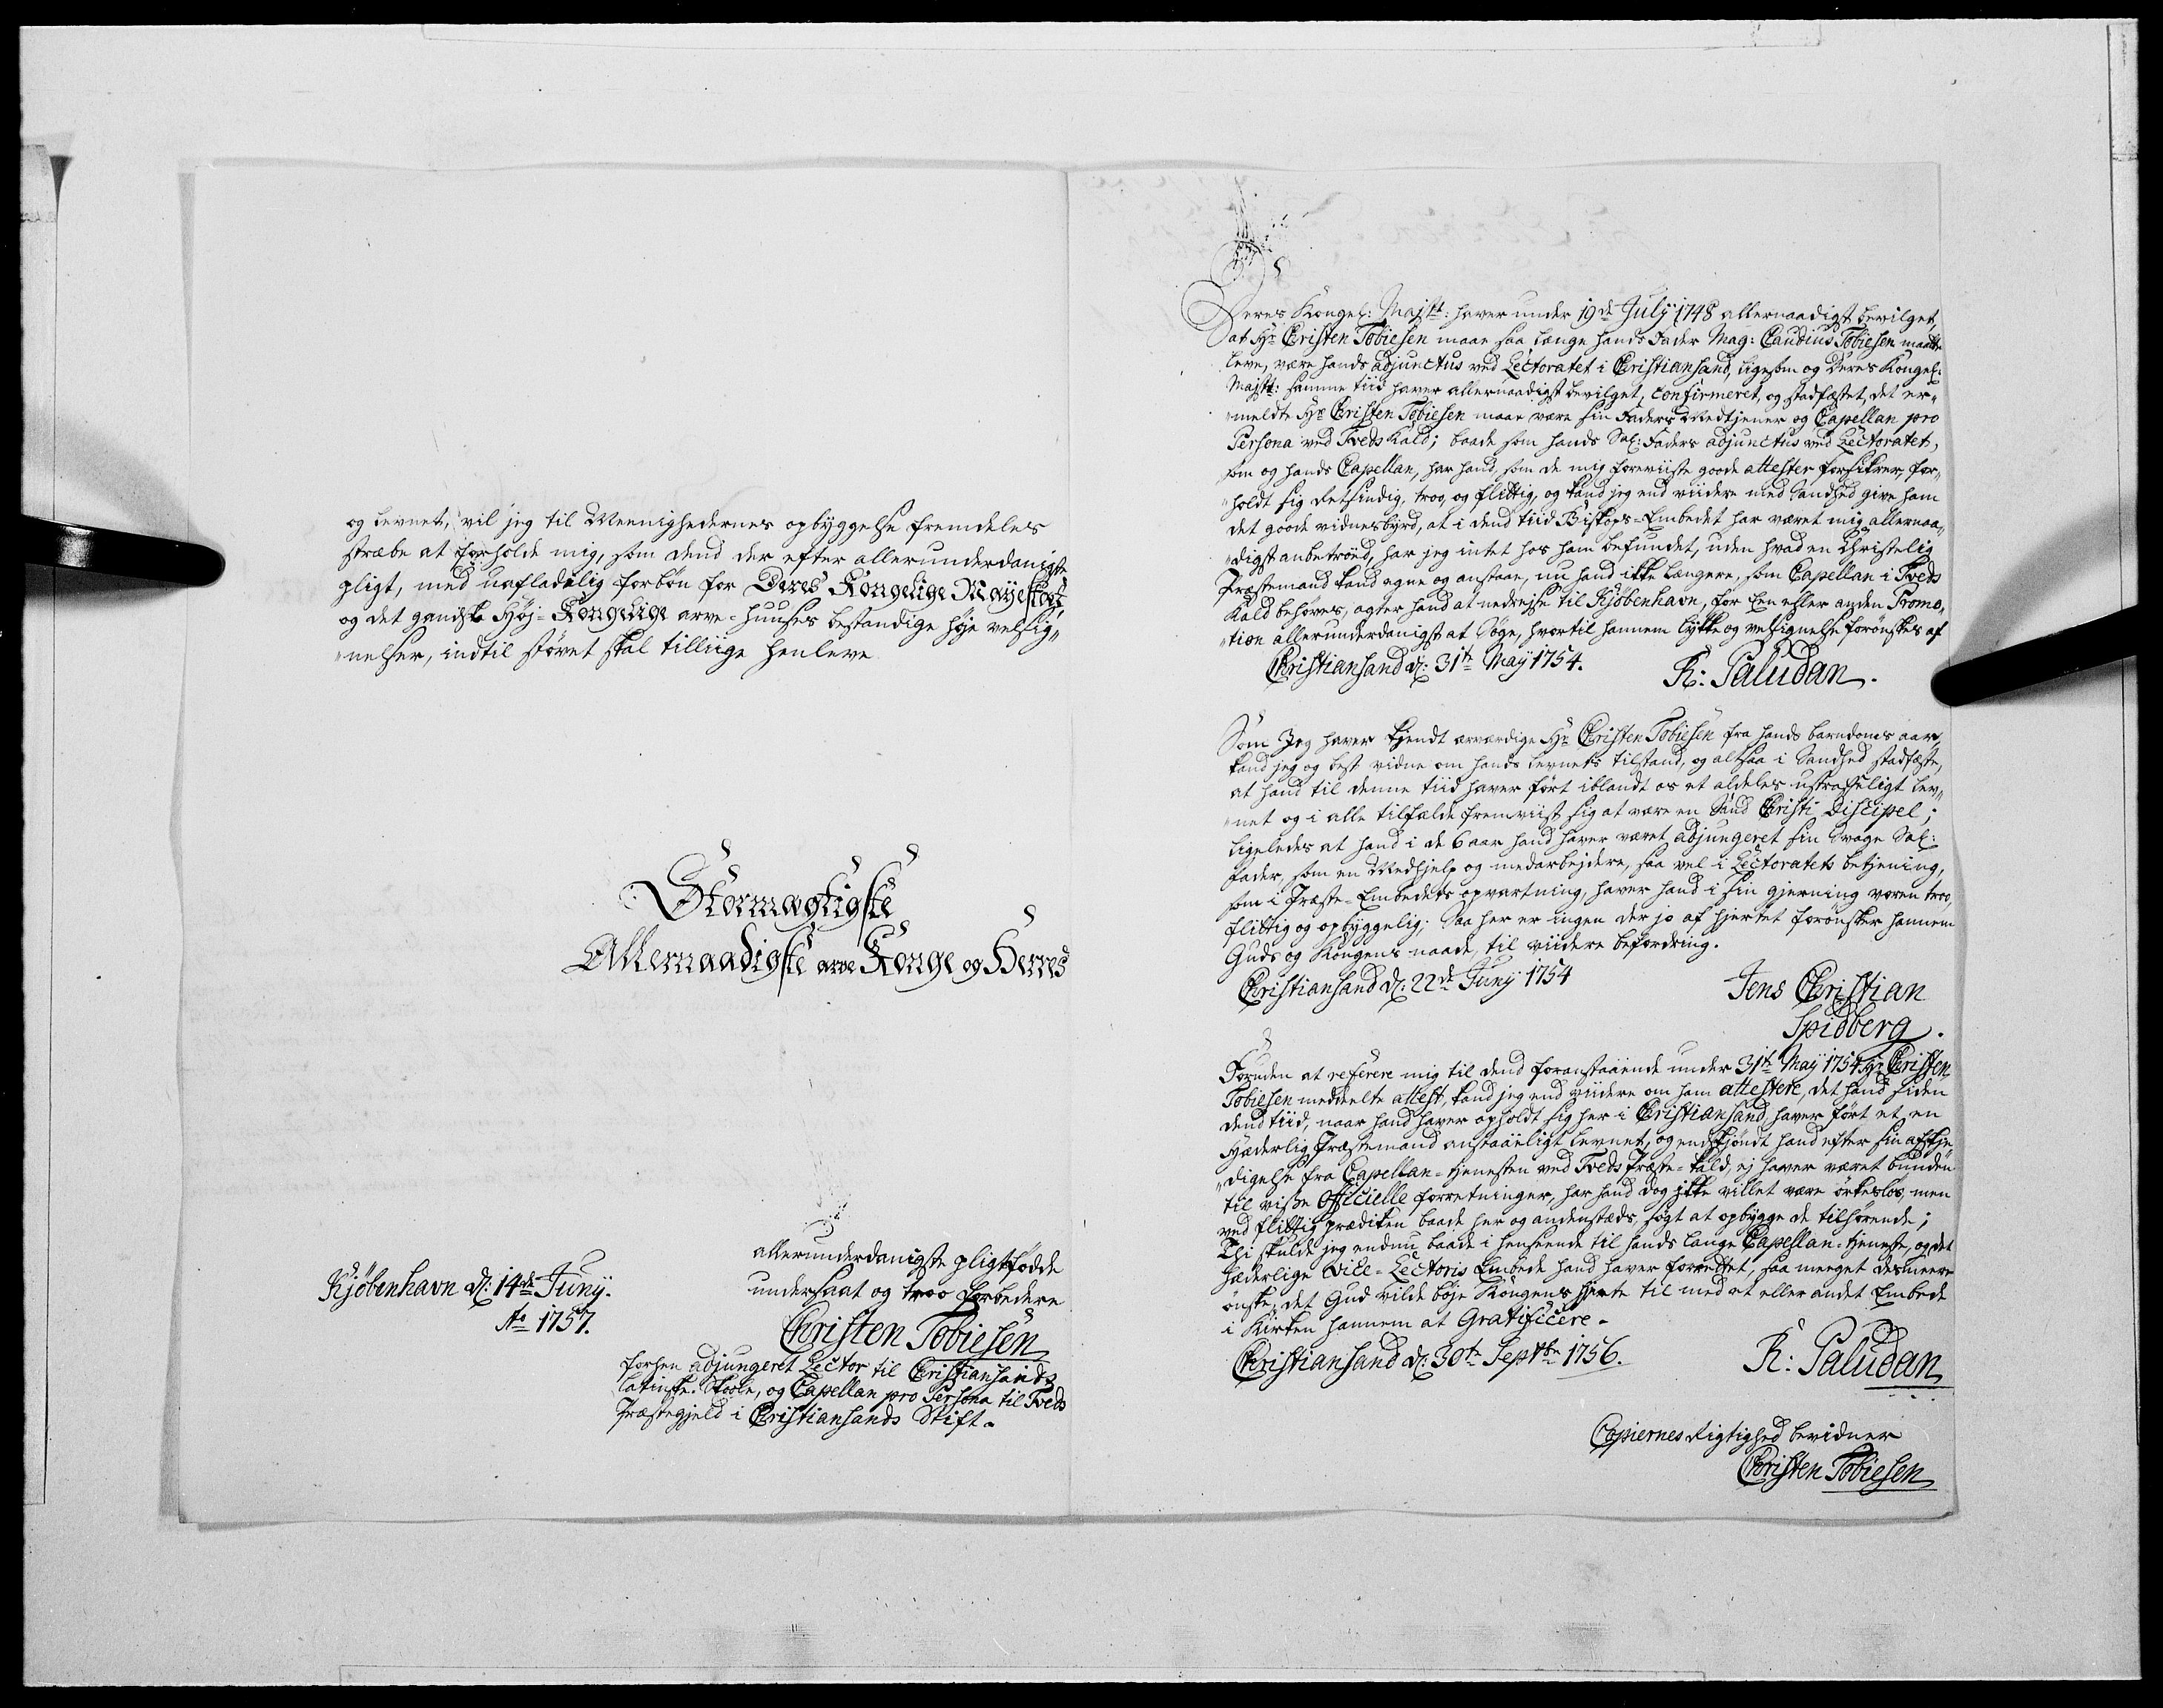 og levnet, vil jeg til Meenighedernes opbyggelse fremdeles
stræbe at forholde mig, som dend der efter allerunderdanigste
pligt, med uafladelig forbøn for Deres Kongelige Mayestæt,
og det gandske Høj-Kongelige arve-huuses bestandige høje velsig„
„nelser, indtil støvet skal tilliige henleve
Stormægtigste
Allernaadigste arve Konge og Herres
allerunderdanigste pligtfødde
undersaat og troo forbedere
Kjøbenhavn d: 14de Junÿ.
Ao 1757.
Christen Tobiesen
forhen adjungeret Lector til Christiansands
latinske Skoele, og Capellan pro Persona til Tveds
Præstegjeld i Christiansands Stift.
Deres Kongel: Majstt: haver under 19de Julÿ 1748 allernaadigst bevilget,
at Hr Christen Tobiesen maae saa længe hands Fader Mag: Claudius Tobiesen maatte
leve, være hands adjunctus ved Lectoratet i Christiansand, ligesom og Deres Kongel:
Majstt: samme tiid haver allernaadigst bevilget, confirmeret, og stadfæstet, det er„
„meldte Hr Christen Tobiesen maae være sin Faders Medtjener og Capellan pro
Persona ved Tveds Kald; baade som hands Sal: Faders adjunctus ved Lectoratet,
som og hands Capellan, har hand, som de mig foreviiste goode attester forsikrer, for„
„holdt sig retsindig, troo, og flittig, og kand jeg end viidere med Sandhed give ham
det goode vidnesbyrd, at i dend tiid Biskops-Embedet har været mig allernaa„
„digst anbetroed, har jeg intet hos ham befundet, uden hvad en Christelig
Præstemand kand egne og anstaae, nu hand ikke længere, som Capellan i Tveds
Kald behøves, agter hand at nedrejse til Kjøbenhavn, for een eller anden Promo„
„tion allerunderdanigst at Søge, hvortil hannem lykke og velsignelse forønskes af
Christiansand d: 31te Maÿ 1754.
R: Paludan.
Som Jeg haver kjendt ærværdige Hr Christen Tobiesen fra hands barndoms aar,
kand jeg og best vidne om hands levnets tilstand, og altsaa i Sandhed stadfæste,
at hand til denne tiid haver ført iblandt os et aldeles ustraffeligt lev„
„net og i alle tilfælde fremviist sig at være en Sand Christi Discipel;
ligeledes at hand i de 6 aar hand haver været adjungeret sin Svage Sal:
fader, som en Medhjelp og medarbejdere, saa vel i Lectoratets betjening,
som i Præste-Embedets opvartning, haver hand i sin gjerning været troo,
flittig og opbyggelig; Saa her er ingen der jo af hjertet forønsker hannem
Guds og Kongens naade, til viidere befordring.
Christiansand d: 22de Junÿ 1754
Jens Christian
Spidberg.
Foruden at referere mig til dend foranstaaende under 31te Maÿ 1754 Hr Christen
Tobiesen meddeelte attest, kand jeg end viidere om ham attestere, det hand siden
dend tiid, naar hand haver opholdt sig her i Christiansand, haver ført et en
Hæderlig Præstemand anstaaeligt levnet, og endskjøndt hand efter sin afskje„
„digelse fra Capellan-tjenesten ved Tveds Præste-kald, ej haver været bunden
til visse Officielle forretninger, har hand dog ikke villet være ørkesløs, men
ved flittig prædiken baade her og andenstæds, søgt at opbygge de tilhørende;
Thi skulde jeg endnu baade i henseende til hands lange Capellan-tjeneste, og det
hæderlige Vice-Lectoris Embede hand haver forrettet, saa meeget desmeere
ønske, det Gud vilde bøje Kongens hjerte til med et eller andet Embede
i Kirken hannem at Gratificere.
Christiansand d: 30te Septbr 1756.
R: Paludan
Copiernes Rigtighed bevidner
Christen Tobiesen